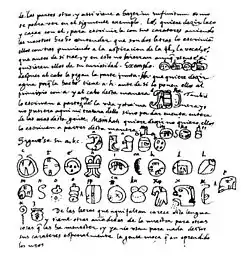 de las partes otro, y assi viene a hazer in infinitum como
se podra ver en el siguiente exemplo. Le, quiere dezir laço
y caçar con el, para escrivirle con sus carateres aviendo
les nosotros hecho entender que son dos letras lo escrivian
ellos con tres puniendo a la aspiracion de la l, la vocal e,
que antes de si trae, y en esto no hierran aunque
quisieren ellos de su curiosidad. Exemplo.
despues al cabo le pegan la parte junta. Ha que quiere dezir
agua porque la hache tiene a, h antes de si la ponen ellos al
principio con a, y al cabo desta manera
lo escriven a partes de la una y otra manera, yo
no pusiera aqui ni tratara dello sino por dar cuenta entera
de las cosas desta gente. Mainkati quiere dezir no quiero ellos
lo escriven a partes desta manera
Siguese su a, b, c.
De las letras que aqui faltan carece esta lengua
y tiene otras añadidas de la nuestra para otras
cosas que las ha menester, y ya no usan para nada destos
sus carateres especialmente la gente moça que an aprendido
los nros